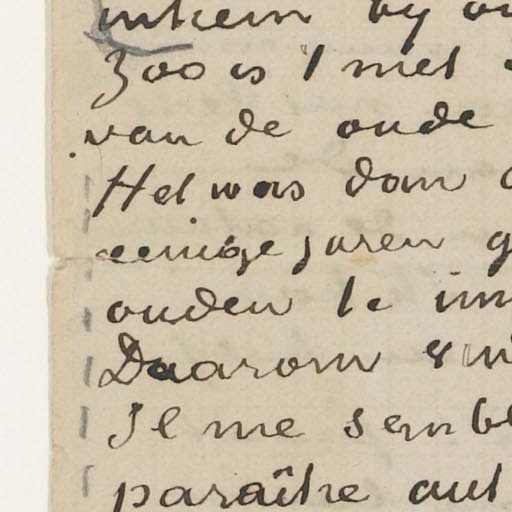 by
Zoo is 't met
van de oude
Het was dan
eenige jaren g
ouden te im
Daarom
Il me semble
paraître aut